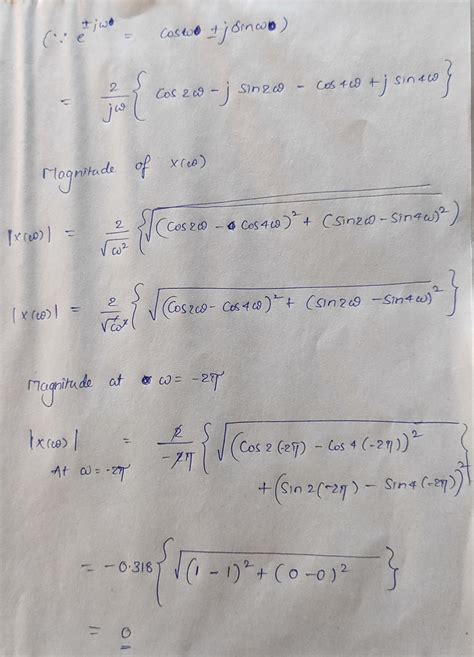 (∵ e^{±jω} = cosω ± j sinω)
= 2/jω { cos2ω - j sin2ω - cos4ω + j sin4ω }
Magnitude of x(ω)
|x(ω)| = 2/√ω² { √((cos2ω - cos4ω)² + (sin2ω - sin4ω)²) }
|x(ω)| = 2/√ω² { √((cos2ω - cos4ω)² + (sin2ω - sin4ω)²) }
Magnitude at ω = -2π
|x(ω)| At ω = -2π = 2/-2π { √((cos2(-2π) - cos4(-2π))²
+ (sin2(-2π) - sin4(-2π))² }
= -0.318 { √((1-1)² + (0-0)²) }
= 0